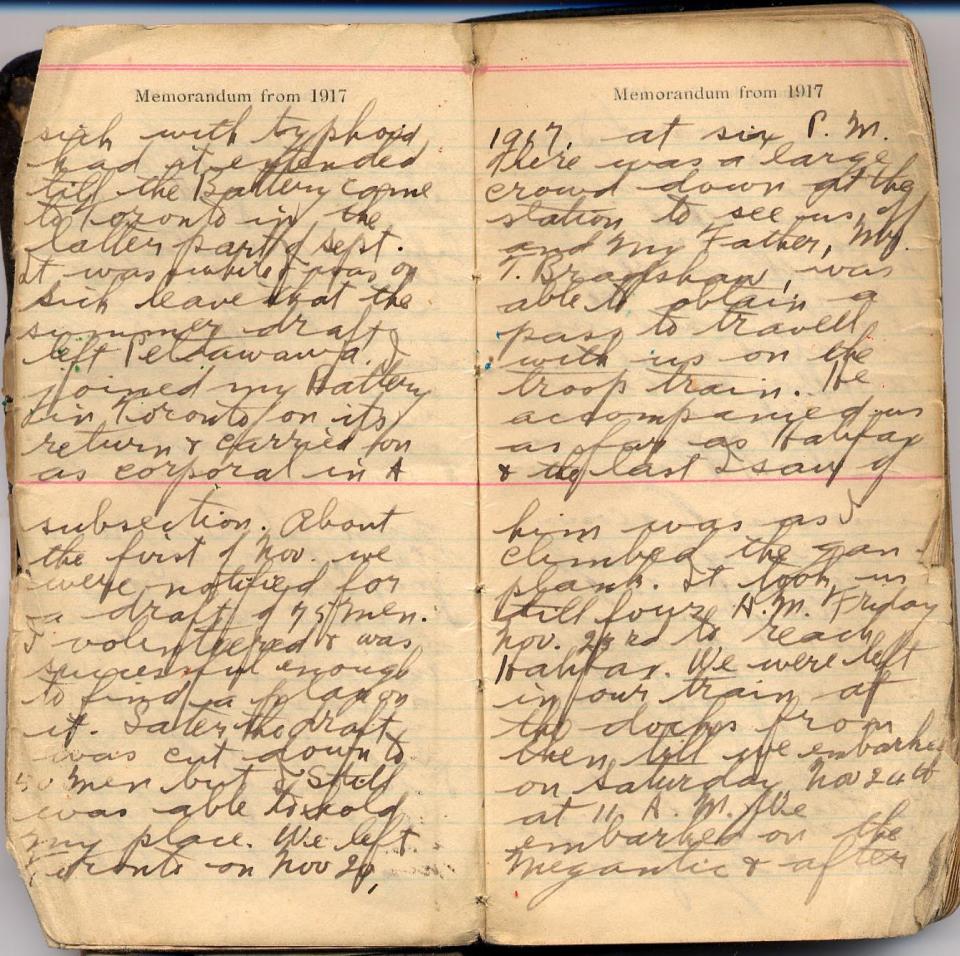 Memorandum from 1917
sick with typhoid
had it extended
till the Battery came
to Toronto in the
latter part of Sept.
It was while I was on
sick leave that the
summer draft
left Petawawa. I
joined my Battery
in Toronto on its
return & carried on
as corporal in A
subsection. About
the first of Nov. we
were notified for
a draft of 75 men.
I volunteered & was
successful enough
to find a place on
it. Later the draft
was cut down to
50 men but I still
was able to hold
my place. We left
Toronto on Nov 20,
Memorandum from 1917
1917, at six P. M.
There was a large
crowd down at the
station to see us off
and my Father, Mr.
T. Bradshaw, was
able to obtain a
pass to travell
with us on the
troop train. He
accompanied us
as far as Halifax
& the last I saw of
him was as I
climbed the gan
plank. It took us
till four A.M. Friday
Nov. 23rd to reach
Halifax. We were left
in our train at
the docks from
then till we embarked
on Saturday, Nov 24th
at 11 A. M. We
embarked on the
Megantic & after